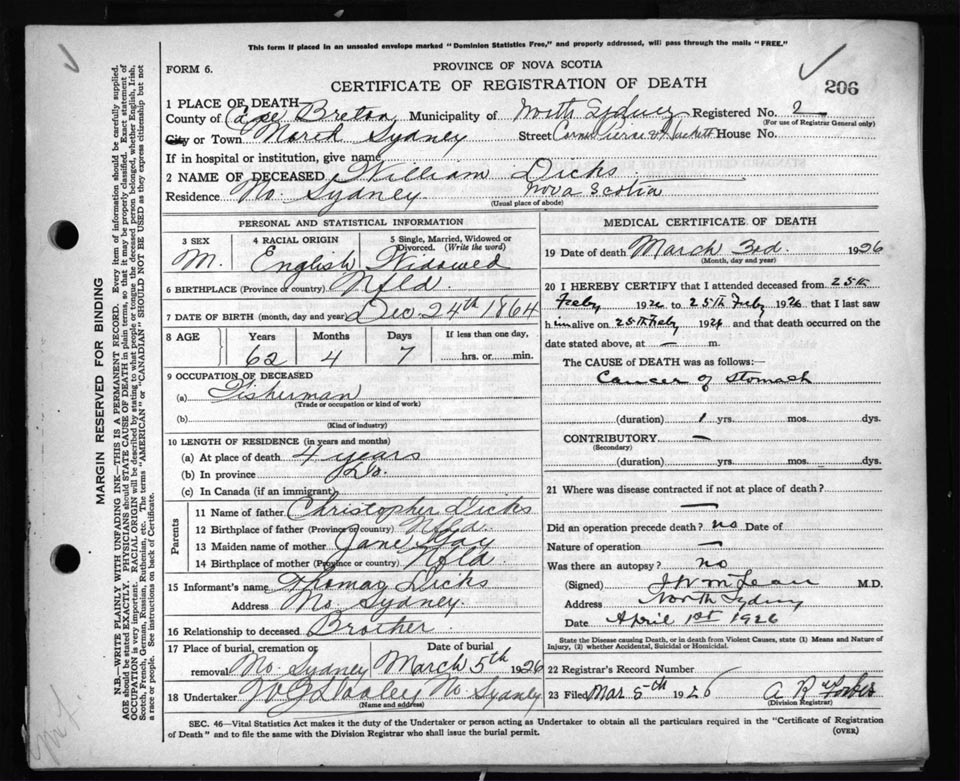 This form if placed in an unsealed envelope marked "Dominion Statistics Free," and properly addressed, will pass through the mails "FREE."
FORM 6.
PROVINCE OF NOVA SCOTIA
CERTIFICATE OF REGISTRATION OF DEATH
206
1 PLACE OF DEATH
County of Cape Breton Municipality of North Sydney Registered No. 2
(For use of Registrar General only)
City or Town North Sydney Street Corner Pierce & House No.
If in hospital or institution, give name
2 NAME OF DECEASED William Dicks
Residence No. Sydney Nova Scotia
(Usual place of abode)
PERSONAL AND STATISTICAL INFORMATION
3 SEX M.
4 RACIAL ORIGIN English
5 Single, Married, Widowed or Divorced. (Write the word) Widowed
6 BIRTHPLACE (Province or country) Nfld
7 DATE OF BIRTH (month, day and year) Dec. 24th 1864
8 AGE Years Months Days If less than one day,
62 4 7 hrs. or min.
9 OCCUPATION OF DECEASED
(a) Fisherman
(Trade or occupation or kind of work)
(b)
(Kind of industry)
10 LENGTH OF RESIDENCE (in years and months)
(a) At place of death 4 years
(b) In province Do.
(c) In Canada (if an immigrant)
Parents
11 Name of father Christopher Dicks
12 Birthplace of father (Province or country) Nfld.
13 Maiden name of mother Jane
14 Birthplace of mother (Province or country) Nfld.
15 Informant's name Thomas Dicks
Address No. Sydney.
16 Relationship to deceased Brother.
17 Place of burial, cremation or removal No. Sydney
Date of burial March 5th 1926
18 Undertaker No Sydney
(Name and address)
MEDICAL CERTIFICATE OF DEATH
19 Date of death March 3rd. 1926
(Month, day and year)
20 I HEREBY CERTIFY that I attended deceased from 25th
Feby 1926 to 25th Feby 1926 that I last saw
him alive on 25th Feby 1926 and that death occurred on the
date stated above, at — m.
The CAUSE of DEATH was as follows:—
Cancer of Stomach
(duration) 1 yrs. mos. dys.
CONTRIBUTORY —
(Secondary)
(duration) yrs. mos. dys.
21 Where was disease contracted if not at place of death?
—
Did an operation precede death? no Date of
Nature of operation —
Was there an autopsy? no
(Signed) McLean M.D.
Address North Sydney
Date April 1st 1926
State the Disease causing Death, or in death from Violent Causes, state (1) Means and Nature of
Injury, (2) whether Accidental, Suicidal or Homicidal.
22 Registrar's Record Number
23 Filed Mar 5th 1926 A R Forbes
(Division Registrar)
SEC. 46—Vital Statistics Act makes it the duty of the Undertaker or person acting as Undertaker to obtain all the particulars required in the "Certificate of Registration
of Death" and to file the same with the Division Registrar who shall issue the burial permit.
(OVER)
MARGIN RESERVED FOR BINDING
N.B.—WRITE PLAINLY WITH UNFADING INK—THIS IS A PERMANENT RECORD. Every item of information should be carefully supplied.
AGE should be stated EXACTLY. PHYSICIANS should STATE CAUSE OF DEATH in plain terms, so that it may be properly classified. Exact statement of
OCCUPATION is very important. RACIAL ORIGIN will be described by stating to what people or tongue the deceased person belonged, whether English, Irish,
Scotch, French, German, Russian, Ruthenian, etc. The terms "AMERICAN" or "CANADIAN" SHOULD NOT BE USED as they express citizenship but not
a race or people. See instructions on back of Certificate.